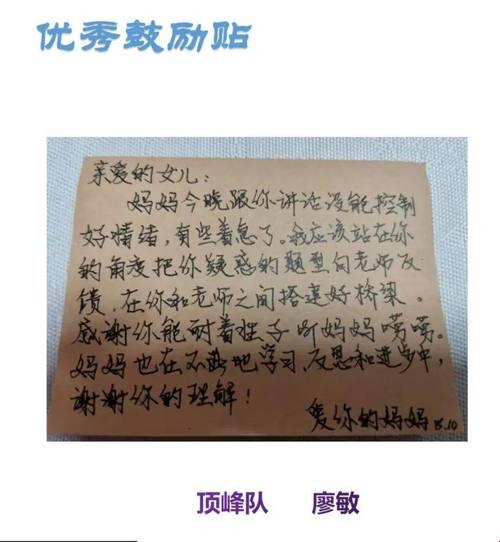 优秀鼓励贴
亲爱的女儿:
妈妈今晚跟你讲话没能控制
好情绪,有些着急了。我应该站在你
的角度把你疑惑的题型向老师反
馈,在你和老师之间搭建好桥梁。
感谢你能耐着性子听妈妈唠唠。
妈妈也在不断地学习、反思和进步中,
谢谢你的理解!
爱你的妈妈 5.10
顶峰队 廖敏